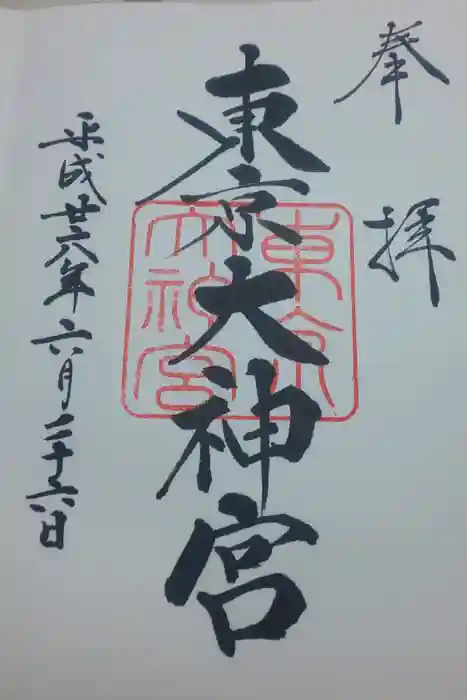 奉拝
東京大神宮
東京大神宮
平成廿六年六月二十六日